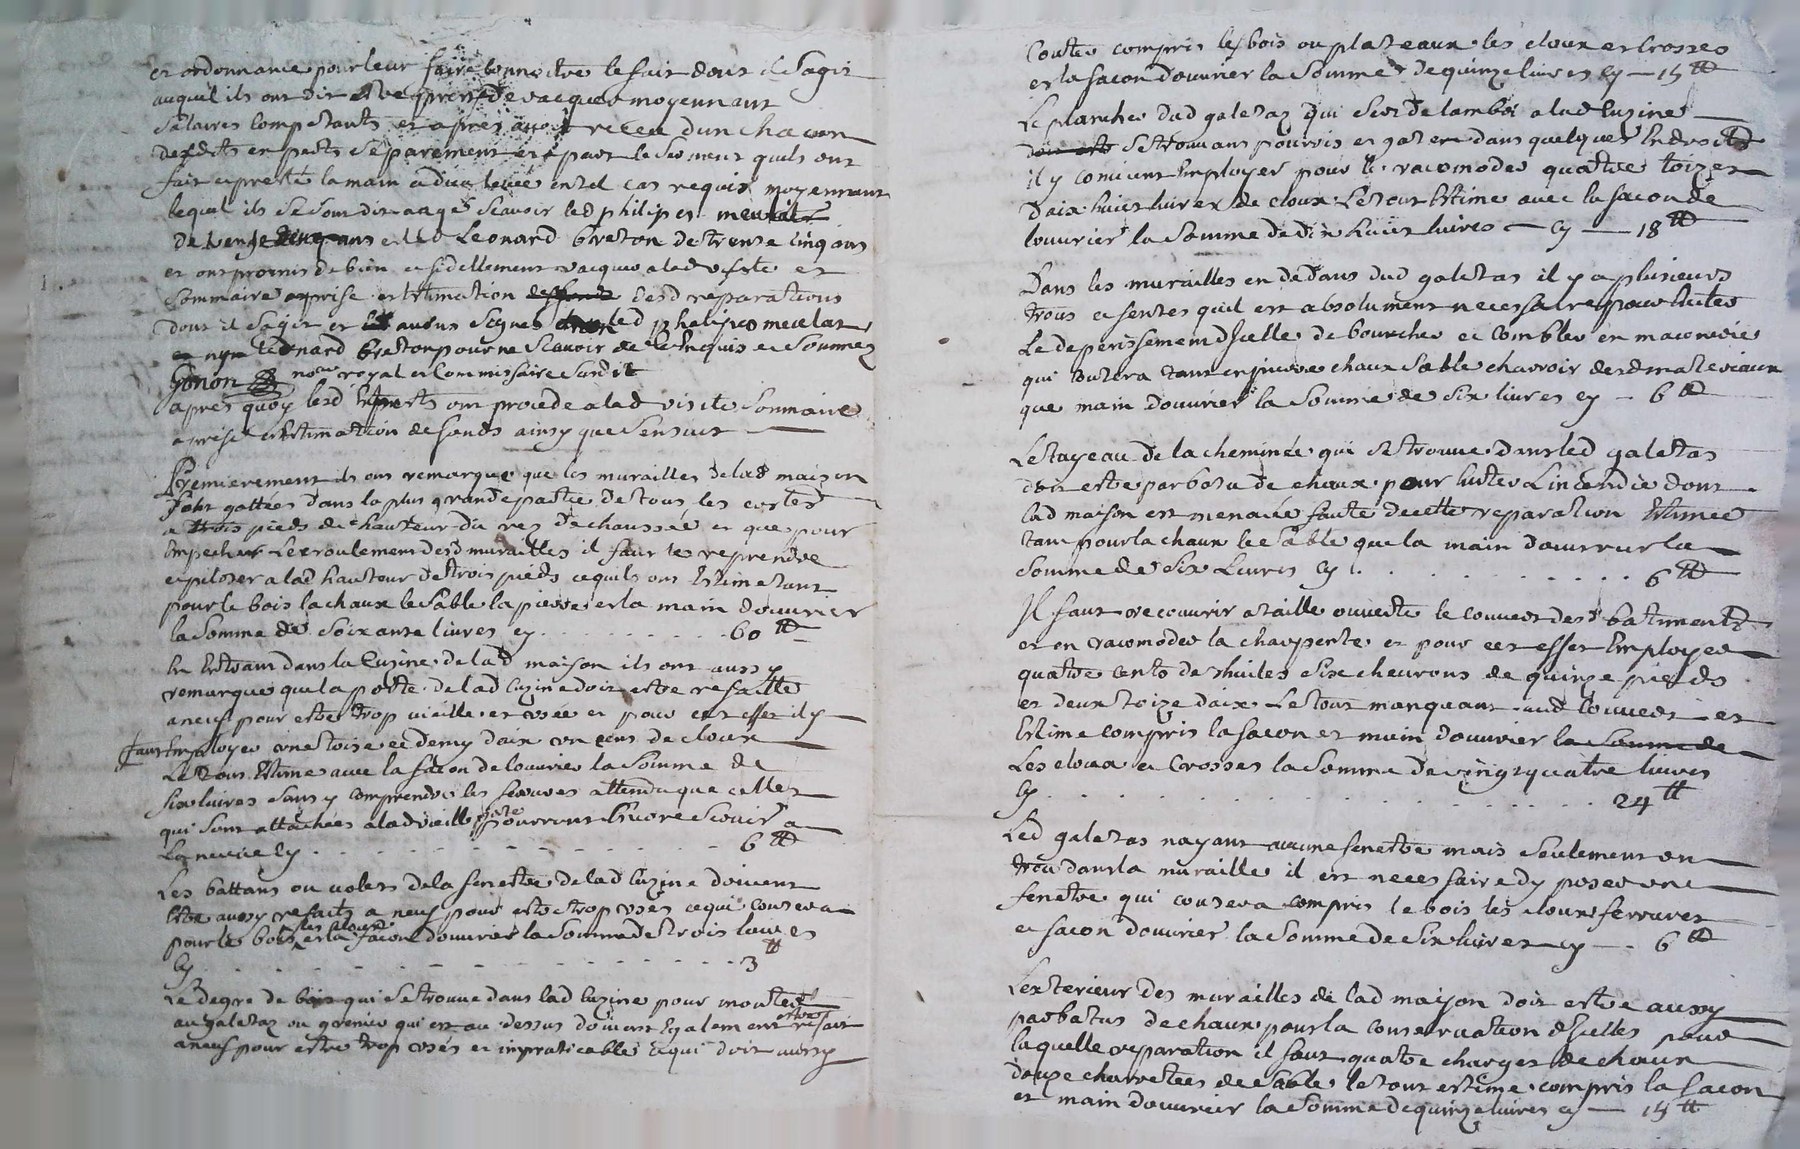 et ordonnance pour leur faire connoitre le fait dont il sagit
auquel ils ont dit de vacquer moyennant
salaires competants et apres avoir receu dun chacun
desdits experts separement et apart le serment quils ont
fait et presté la main a dieu levée en tel cas requis moyennant
lequel ils se sont dit aagés scavoir led philipes meulat
de ans et led Leonard breton de trente cinq ans
et ont promis de bien et fidellement vacquer a lad visite et
sommaire aprise estimation desd reparations
dont il sagit et avons signé led phelipes meulat
Leonard breton pour ne scavoir de ce enquis et sommez
Gonon no.re royal et Commissaire susdit
apres quoy lesd Experts ont procedé a lad visite sommaire
aprise et Estimation de fonds ainsy que sensuit
Premierement ils ont remarqué que les murailles de lad maison
sont gattées dans la plus grande partie de tous les costes
a trois pieds de hauteur du rez de chaussée et que pour
empecher lecroulement desd murailles il faut les reprendre
et piloter a lad hauteur de trois pieds ce quils ont Estimé tant
pour le bois la chaux le sable la pierre et la main douvrier
la somme de soixante livres cy . . . . . . . . . 60 ₶
En Entrant dans la Cuzine de lad maison ils ont aussy
remarqué que la porte de lad Cuzine doit estre refaitte
a neuf pour estre trop vieille et usée et pour cet effet il y
faut Employer une toise et demy daix un cent de cloux
Le tout Estimé avec la facon de louvrier la somme de
six livres sans y comprendre les ferrures attendu que celles
qui sont attachées a lad vieille porte pourront Encore servir a
La neuve Cy . . . . . . . . . . . 6 ₶
Les battans ou volets de la fenestre de lad Cuzine doivent
Etre aussy refaits a neuf pour estre trop usés ce qui coutera
pour le bois les cloux et la facon douvrier la somme de trois livres
Cy . . . . . . . . . . . . . 3 ₶
Le degre de bois qui se trouve dans lad Cuzine pour monter
au galetaz ou grenier qui est au dessus doivent Egalement estre refait
a neuf pour estre trop usés et impraticable ce qui doit aussy
Couter compris les bois ou plateaux les cloux et Crosses
et la facon douvrier la somme de quinze livres Cy — 15 ₶
Le plancher dud galetaz qui sert de lambri a lad Cuzine
se trouvant pourris et gatere dans quelques Endroits
il y convient Employer pour le racomoder quatre toizes
daix huit livres de cloux Le tout Estimé avec la facon de
louvrier la somme de dix huit livres — Cy — 18 ₶
Dans les murailles en dedans dud galetas il y a plusieurs
trous et fentes quil est absolument necessaire pour Eviter
Le deperissement dicelle de boucher et combler en maconnerie
qui coutera tant en pierre chaux sable charroir desd materiaux
que main douvrier la somme de six livres cy — 6 ₶
Le tuyeau de la cheminée qui se trouve dans led galetas
doit estre parbatu de chaux pour Eviter Lincendie dont
lad maison est menacée faute de cette reparation Estimée
tant pour la chaux le sable que la main douvrier la
somme de six Livres Cy . . . . . . . . 6 ₶
Il faut recouvrir a taille ouverte le couvert desd batiments
et en racomoder la charpente et pour cet effet Employer
quatre cents de thuiles six chevrons de quinze pieds
et deux toize daix Le tout manquant aud Couvert et
Estimé compris la facon et main douvrier la somme de
Les cloux et Crosses la somme de vingt quatre livres
Cy . . . . . . . . . . . . . . . 24 ₶
Led galetas nayant aucune fenetre mais seulement un
trou dans la muraille il est necessaire dy poser une
fenetre qui coutera compris le bois les cloux ferrures
et facon douvrier la somme de six livres cy — 6 ₶
Lexterieur des murailles de lad maison doit estre aussy
parbatus de chaux pour la conservation dicelles pour
laquelle reparation il faut quatre charges de chaux
douze charretées de sable le tout estimé compris la facon
et main douvrier la somme de quinze livres cy — 15 ₶